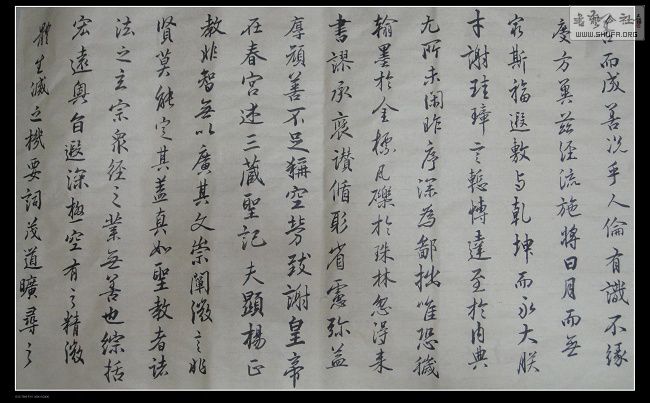 而成善况乎人倫有識不緣
慶方冀茲經流施將日月而無
窮斯福遐敷与乾坤而永大朕
才謝珪璋言慙博達至於内典
尤所未閑昨序深為鄙拙唯恐穢
翰墨於金標瓦礫於珠林忽得来
書謬承褒讃循躬省慮弥益
厚顔善不足稱空勞致謝皇帝
在春宮述三藏聖記 夫顯揚正
教非智無以廣其文崇闡微言非
賢莫能定其盖真如聖教者諸
法之玄宗衆經之業無善也綜括
宏遠奥旨遐深極空有之精微
體生滅之機要詞茂道曠尋之
WWW.SHUFA.ORG